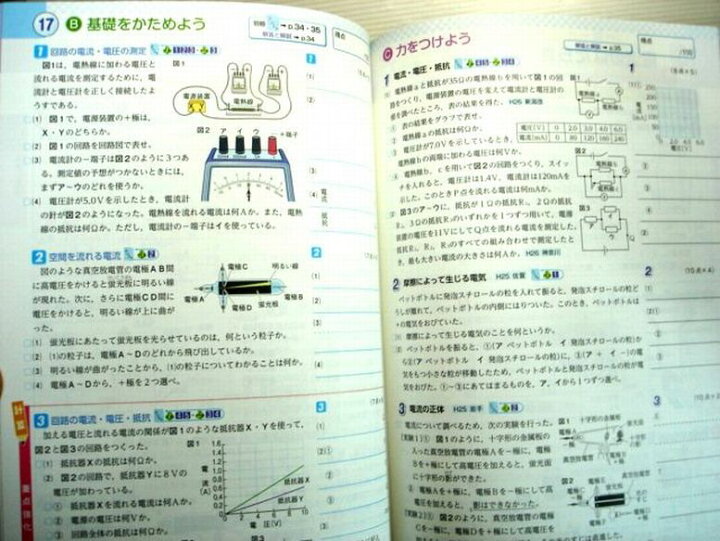 17 B 基礎をかためよう
→p.34・35
解答と解説 →p.34
得点
1 回路の電流・電圧の測定
図1は，電熱線に加わる電圧と
流れる電流を測定するために，電
流計と電圧計を正しく接続したよ
うすである。
(1) 図1で，電源装置の＋極は，
X・Yのどちらか。
(2) 図1の回路を回路図で表せ。
(3) 電流計の－端子は図2のように3つあ
る。測定値の予想がつかないときには，
まずア～ウのどれを使うか。
(4) 電圧計が5.0Vを示したとき，電流計
の針が図2のようになった。電熱線を流れる電流は何Aか。また，電熱
線の抵抗は何Ωか。ただし，電流計の－端子はイを使っている。
図1
電源装置
電熱線
図2 ア イ ウ ＋端子
1
(1)
(2)
(3)
(4)
電流
抵抗
2 空間を流れる電流
図のような真空放電管の電極AB間
に高電圧をかけると蛍光板に明るい線
が現れた。次に，さらに電極CD間に
電圧をかけると，明るい線が上に曲が
った。
(1) 蛍光板にあたって蛍光板を光らせているのは，何という粒子か。
(2) (1)の粒子は，電極A～Dのどれから飛び出しているか。
(3) 明るい線が曲がったことから，(1)の粒子についてわかることは何か。
(4) 電極A～Dから，＋極を2つ選べ。
電極C 明るい線
電極A
電極D
蛍光板
電極B
2
(1)
(2)
(3)
(4)
3 回路の電流・電圧・抵抗
加える電圧と流れる電流の関係が図1のような抵抗器X・Yを使って，
図2と図3の回路をつくった。
(1) 抵抗器Xの抵抗は何Ωか。
(2) 図2の回路で，抵抗器Yに8Vの
電圧が加わっている。
① 抵抗器Xを流れる電流は何Aか。
② 電源の電圧は何Vか。
③ 回路全体の抵抗は何Ωか。
図1
1.6
1.4
1.2
1.0
0.8
0.6
0.4
0.2
0
電流(A)
抵抗器X
抵抗器Y
0 2 4 6 8 10
電圧(V)
3
C 力をつけよう
解答と解説 →p.35
得点
/100
1 電流・電圧・抵抗
電熱線aと抵抗が35Ωの電熱線bを用いて図1の回
路をつくり，電源装置の電圧を変えて電流計と電圧計の
値を調べたところ，表の結果を得た。H26 新潟改
表の結果をグラフで表せ。
電熱線aの抵抗は何Ωか。
電圧計が7.0Vを示しているとき，
電熱線bの両端に加わる電圧は何Vか。
電圧〔V〕 0 2.0 3.0 4.0 6.0
電流〔mA〕 0 80 120 160 240
図1
電熱線b，cを用いて図2の回路をつくり，スイッ
チを入れると，電圧計は1.4V，電流計は120mAを
示した。このとき点を流れる電流は何mAか。
図3のア～ウに，抵抗が1Ωの抵抗R₁，2Ωの抵抗
R₂，3Ωの抵抗R₃のいずれかを1つずつ用いて，電源
装置の電圧を1VにしてQ点を流れる電流を測定した。
抵抗R₁，R₂，R₃のすべての組み合わせで測定したと
き，最も大きい電流の大きさは何Aか。H26 神奈川
図2
図3
2 摩擦によって生じる電気 H25 佐賀
ペットボトルに発泡スチロールの粒を入れて振ると，発泡スチロールの粒ど
うしが離れて，ペットボトルの内側にはりついた。このとき，ペットボトルは
＋の電気をおびていた。
摩擦によって生じる電気のことを何というか。
ペットボトルを振ると，①(ア ペットボトル イ 発泡スチロールの粒)か
ら②(ア ペットボトル イ 発泡スチロールの粒)に，③(ア ＋ イ －)の電
気をもつ小さな粒が移動したため，ペットボトルと発泡スチロールの粒が電
気をおびた。①～③にあてはまるものを，ア，イから1つずつ選べ。
3 電流の正体 H25 岩手
電流について調べるため，次の実験を行った。
〔実験1〕① 図1のように，十字形の金属板の
入った真空放電管の電極Aを－極に，電極
Bを＋極にして高電圧を加えると，蛍光面
に十字形の影ができた。
② 電極Aを＋極に，電極Bを－極にして高
電圧を加えると，影はできなかった。
〔実験2〕① 図2のように，真空放電管の電極
Cを－極に，電極Dを＋極にして高電圧を
図1 十字形の金属板
蛍光面
電極B
真空放電管
図2